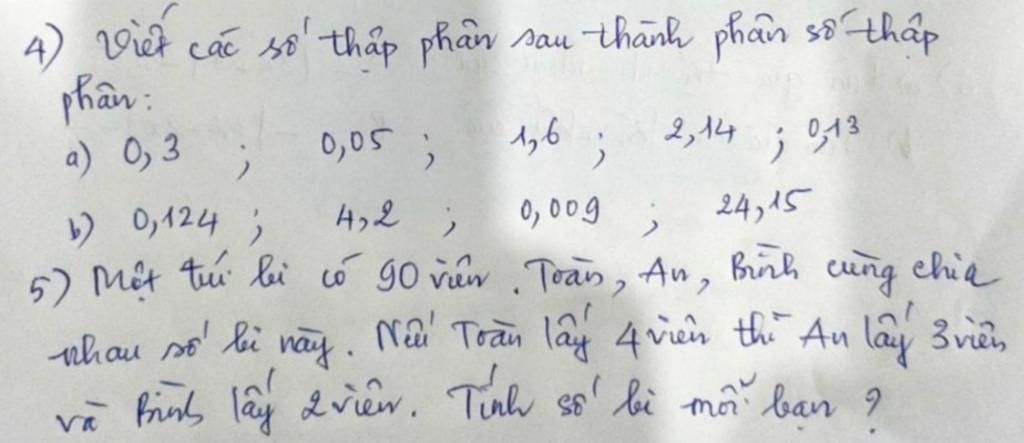 4) Viết các số thập phân sau thành phân số thập
phân:
a) 0,3 ; 0,05 ; 1,6 ; 2,14 ; 0,13
b) 0,124 ; 4,2 ; 0,009 ; 24,15
5) Một túi bi có 90 viên. Toàn, An, Bình cùng chia
nhau số bi này. Nếu Toàn lấy 4 viên thì An lấy 3 viên
và Bình lấy 2 viên. Tính số bi mỗi bạn ?